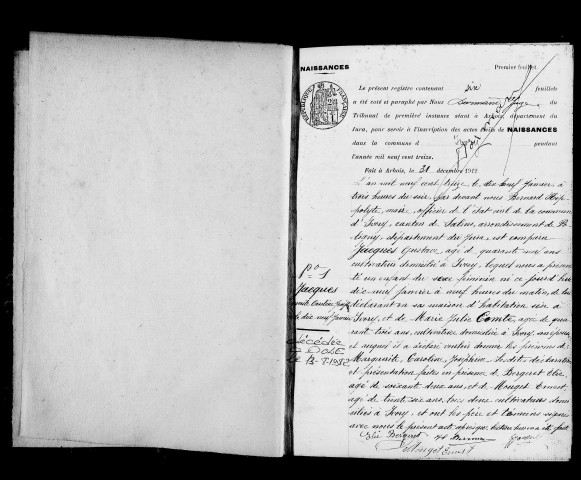 NAISSANCES
Premier feuillet
RÉPUBLIQUE FRANÇAISE
Le présent registre contenant six feuillets
a été coté et paraphé par Nous Juge du
Tribunal de première instance séant à Arbois, département du
Jura, pour servir à l'inscription des actes civils de NAISSANCES
dans la commune d' Ivory pendant
l'année mil neuf cent treize.
Fait à Arbois, le 31 décembre 1912
L'an mil neuf cent treize le dix neuf janvier à
trois heures du soir, par devant nous Bernard Hip-
polyte, maire, officier de l'état civil de la commune
d'Ivory, canton de Salins, arrondissement de Po-
ligny, département du Jura, est comparu
Jacques Gustave, agé de quarante neuf ans
cultivateur domicilié à Ivory, lequel nous a présen-
té un enfant du sexe féminin né ce jourd'hui
dix neuf janvier à neuf heures du matin, de lui
déclarant en sa maison d'habitation sise à
Ivory, et de Marie Julie Comte, agée de qua-
rante trois ans, cultivatrice domiciliée à Ivory, son épouse
et auquel il a déclaré vouloir donner les prénoms de
Marguerite, Caroline, Joséphine. Lesdites déclaration
et présentation faites en présence de Berguet Elie
agé de soixante deux ans, et de Mouget Ernest,
agé de trente six ans, tous deux cultivateurs domi-
ciliés à Ivory, et ont les père et témoins signé
avec nous le présent acte après que lecture leur en a été faite
Elie Berguet
Mouget Ernest
No 1
Jacques
Caroline
le dix neuf janvier
décédée
à DOLE
le 1982